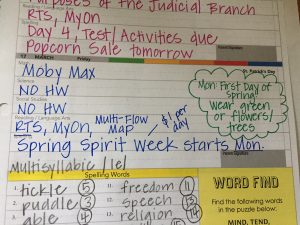 Purposes of the Judicial Branch
Reading / Language Arts
RTS, MyOn
Day 4, Test/Activities due
Popcorn Sale tomorrow
17 MARCH Friday
St. Patrick's Day
Moby Max
Science
NO HW
Social Studies
NO HW
Reading / Language Arts
RTS, MyOn, Multi-Flow Map / $1 per day
Mon: First Day of
Spring
wear green
or flowers/
trees
Spring Spirit Week starts Mon.
Multisyllabic /le/
Spelling Words
tickle 5
puddle 3
able 4
freedom 11
13. speech 13
religion 14
WORD FIND
Find the following words
in the puzzle below:
MIND, TEND,